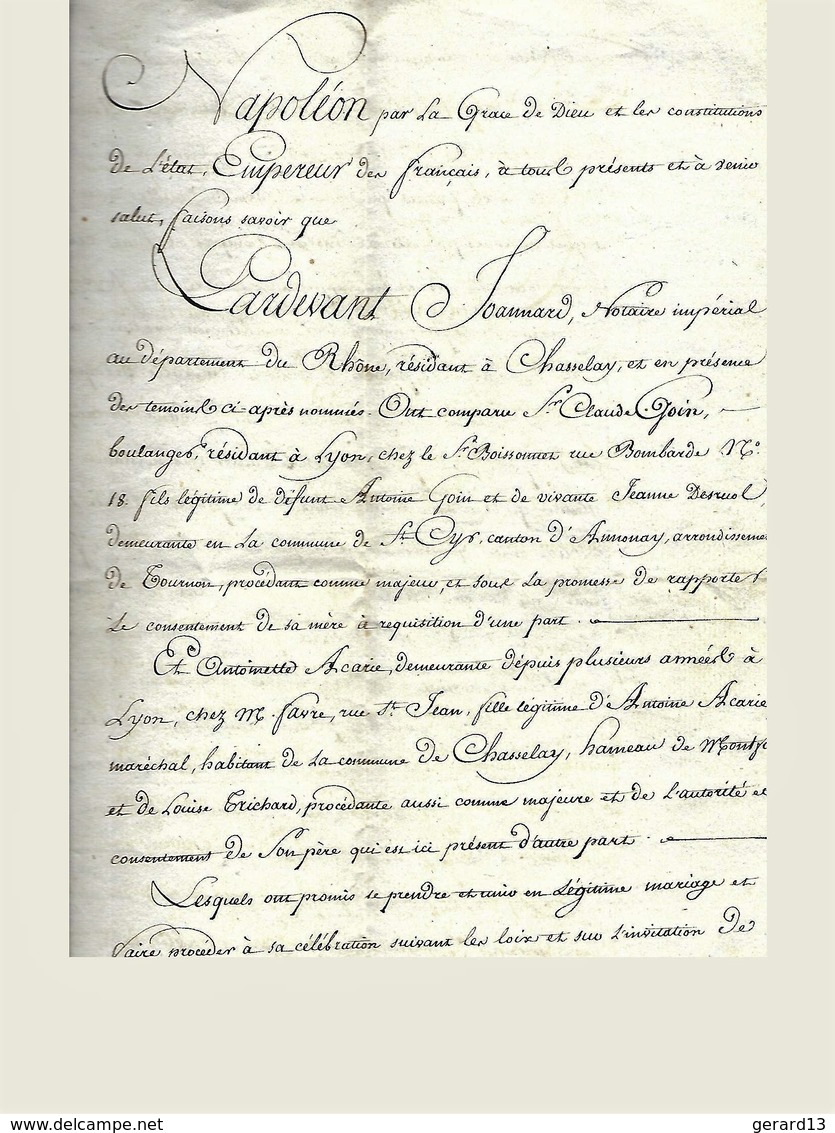 Napoléon par La Grace de Dieu et les constitutions
de L'état, Empereur des français, à tous présents et à venir
salut, faisons savoir que
Pardevant Joannard, Notaire impérial
au département du Rhône, résidant à Chasselay, et en présence
des temoins ci-après nommés. Ont comparu Sr. Claude Goin,
boulanger, résidant à Lyon, chez le Sr. Boissonnet rue Bombarde No.
18. fils légitime de défunt Antoine Goin et de vivante Jeanne
demeurante en La commune de St. Cyr, canton d'Annonay, arrondisseme
de Tournon, procédant comme majeur, et sous La promesse de rapporter
Le consentement de sa mère à requisition d'une part.
Et Antoinette Acarie, demeurante dépuis plusieurs années à
Lyon, chez M. favre, rue St. Jean, fille légitime d'Antoine Acarie
maréchal, habitant de La commune de Chasselay, hameau de
et de Louise Trichard, procédante aussi comme majeure et de L'autorité et
consentement de Son père qui est ici présent d'autre part.
Lesquels ont promis se prendre et unir en Légitime mariage et
faire procéder à sa célébration suivant les loix et sur L'invitation de
www.delcampe.net
gerard13